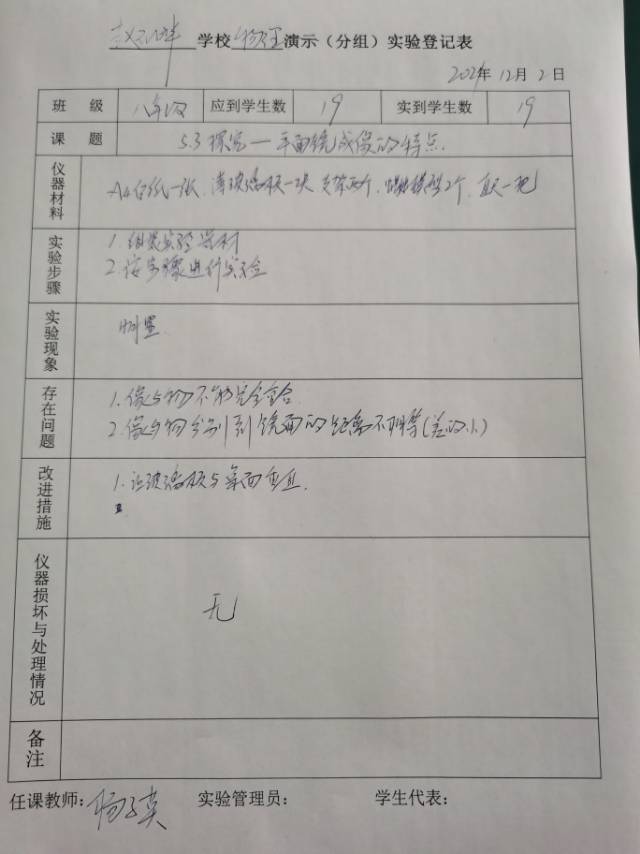 学校物理演示（分组）实验登记表
2021年12月2日
班级 八年级 应到学生数 19 实到学生数 19
课题 5.3探究—平面镜成像的特点.
仪器材料 A4白纸一张、薄玻璃板一块 支架两个、蜡烛模型2个、直尺一把
实验步骤 1.组装实验器材
2.按步骤进行实验
实验现象 明显.
存在问题 1.像与物不能完全重合.
2.像与物分别到镜面的距离不相等(差的小)
改进措施 1.让玻璃板与桌面垂直.
仪器损坏与处理情况 无
备注
任课教师： 实验管理员： 学生代表：